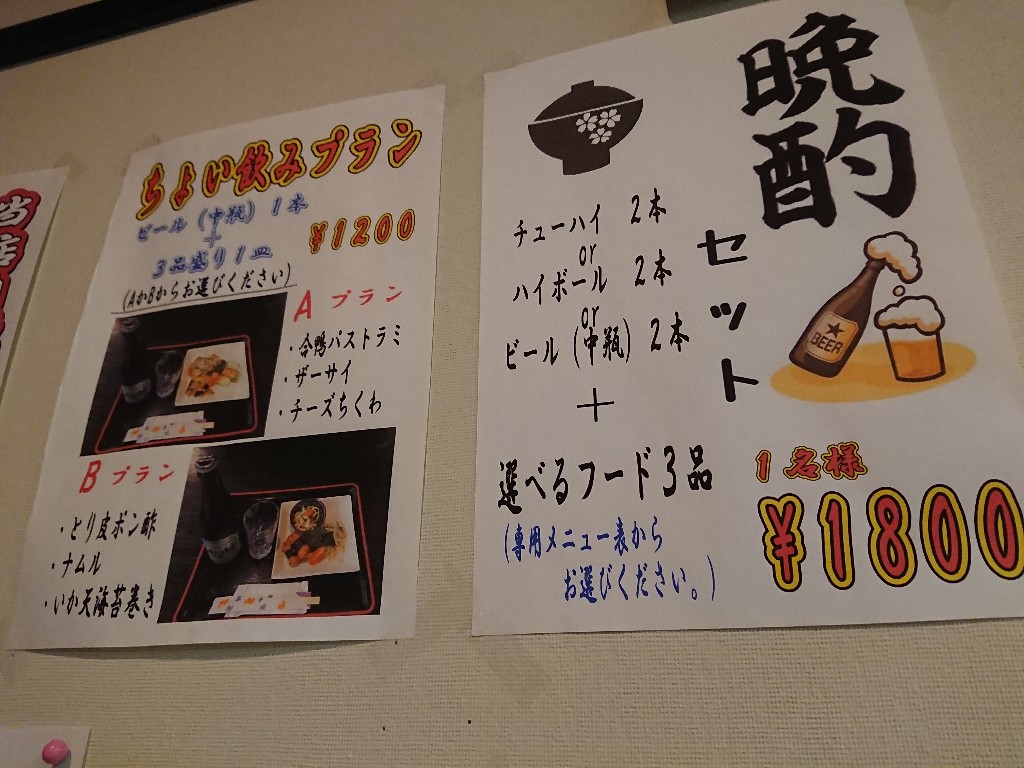 ちょい飲みプラン
ビール(中瓶) 1本
+
3品盛り1皿
¥1200
(AかBからお選びください)
A プラン
・合鴨パストラミ
・ザーサイ
・チーズちくわ
B プラン
・とり皮ポン酢
・ナムル
・いか天海苔巻き
晩酌
セット
チューハイ 2本
or
ハイボール 2本
or
ビール(中瓶) 2本
+
選べるフード3品
(専用メニュー表から
お選びください。)
BEER
1名様
¥1800